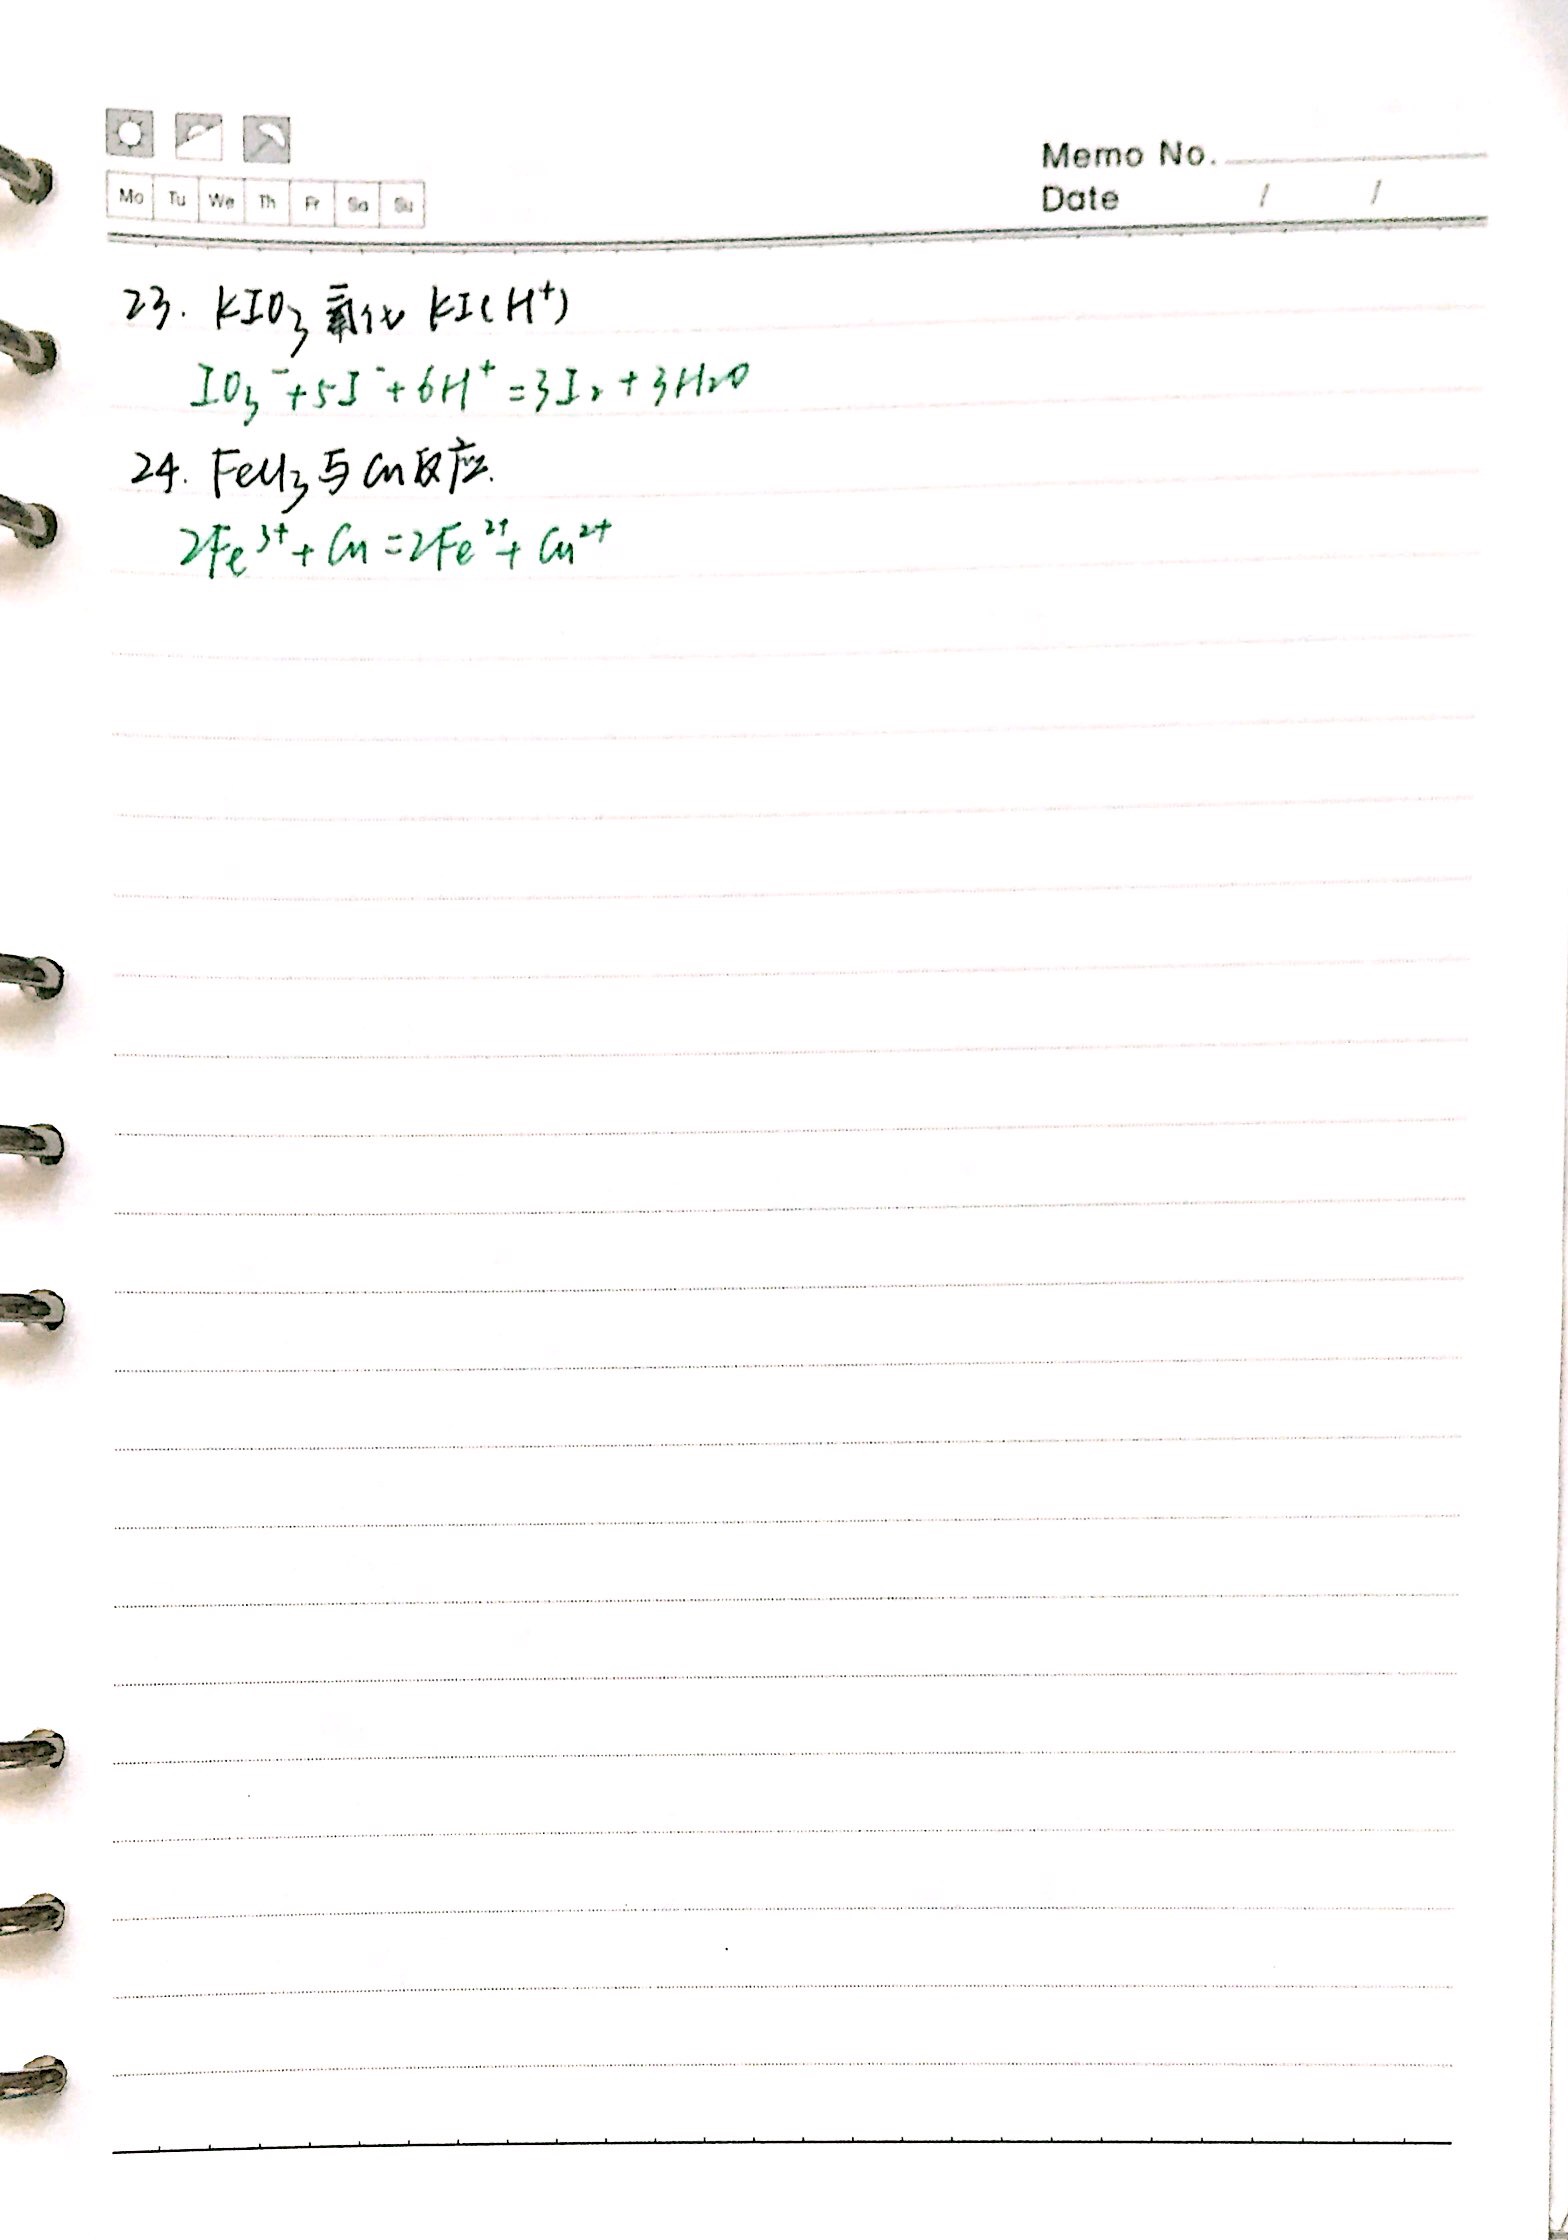 Memo No.
Mo Tu We Th Fr Sa Su
Date / /
23. KIO₃氧化KI(H⁺)
IO₃⁻+5I⁻+6H⁺=3I₂+3H₂O
24. FeCl₃与Cu反应.
2Fe³⁺+Cu=2Fe²⁺+Cu²⁺